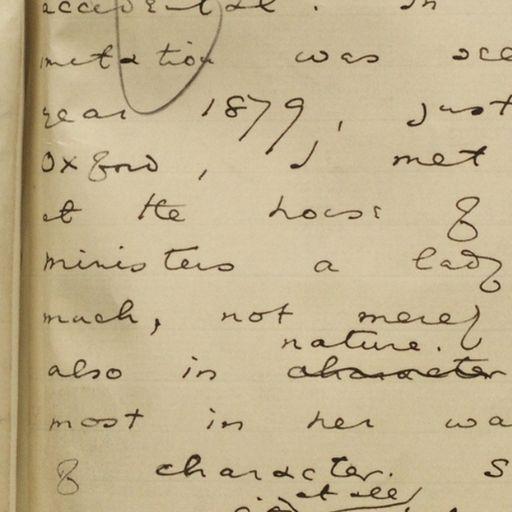 accidental. In
was
year 1879, just
Oxford, I met
at the house of
ministers a lady
much, not merely
nature.
also in character
most in her wa
of character. S
at all